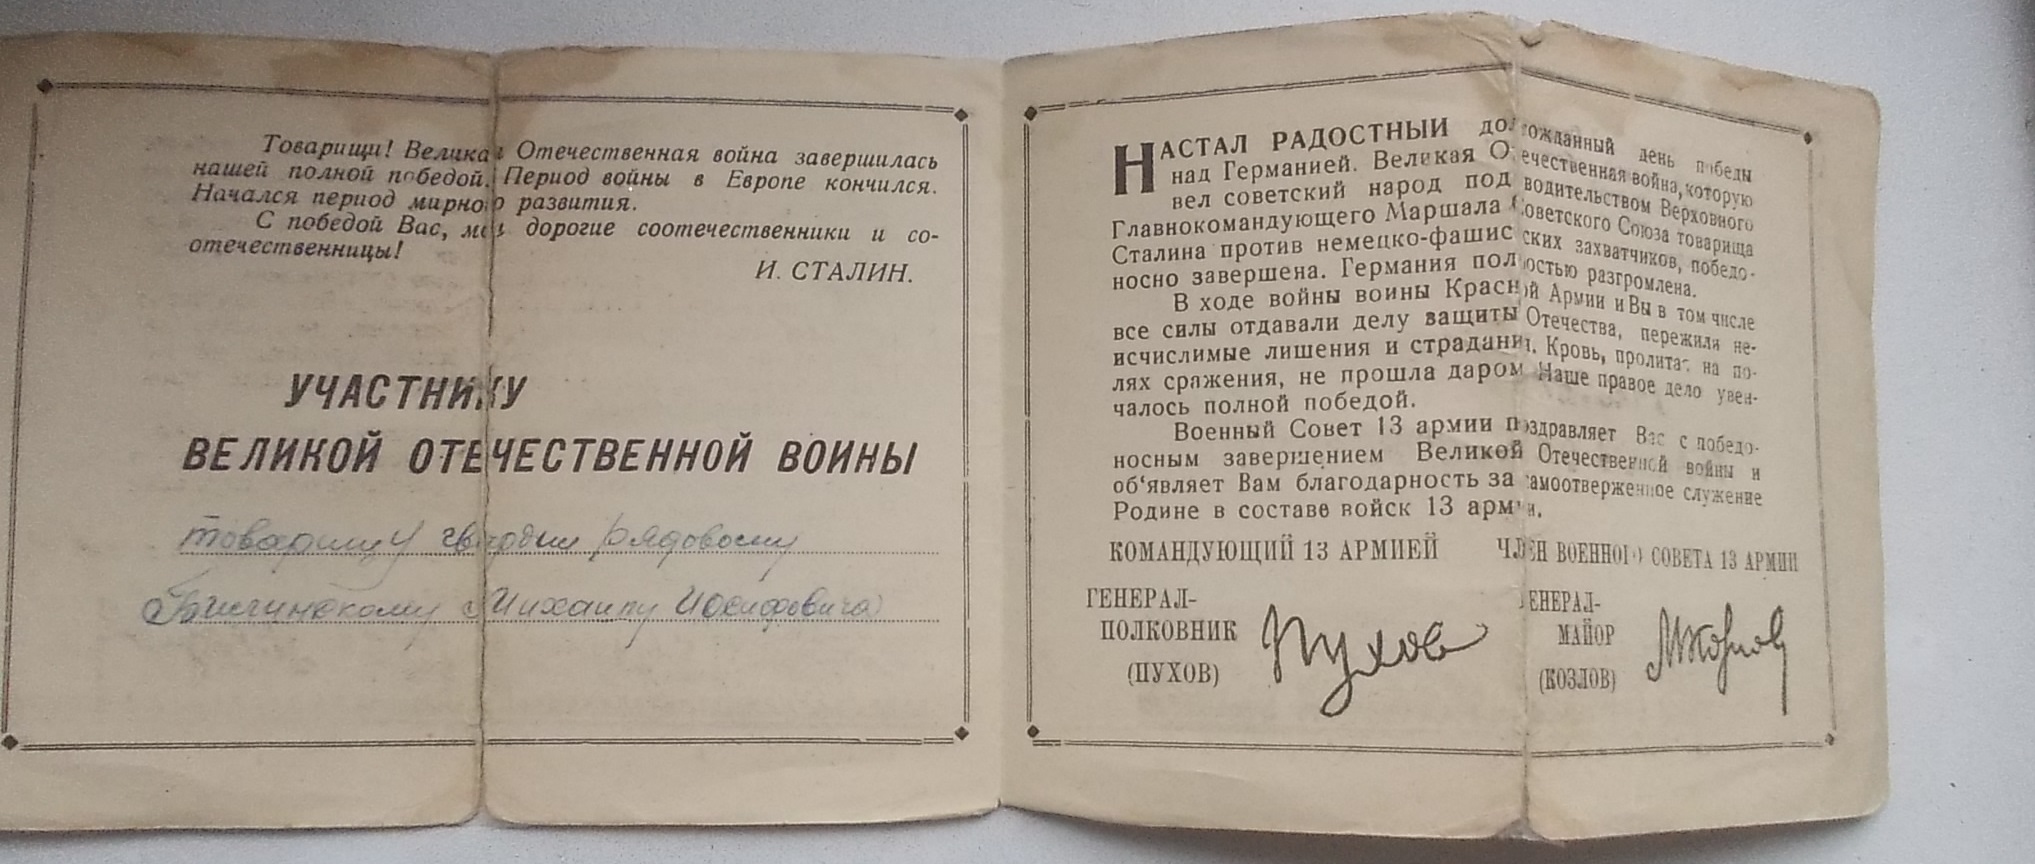 Товарищи! Великая Отечественная война завершилась
нашей полной победой. Период войны в Европе кончился.
Начался период мирного развития.
С победой Вас, мои дорогие соотечественники и со-
отечественницы!
И. СТАЛИН.
УЧАСТНИКУ
ВЕЛИКОЙ ОТЕЧЕСТВЕННОЙ ВОЙНЫ
товарищу гвардии рядовому
Михаилу Иосифовичу
НАСТАЛ РАДОСТНЫЙ долгожданный день победы
над Германией. Великая Отечественная война, которую
вел советский народ под водительством Верховного
Главнокомандующего Маршала Советского Союза товарища
Сталина против немецко-фашистских захватчиков, победо-
носно завершена. Германия полностью разгромлена.
В ходе войны воины Красной Армии и Вы в том числе
все силы отдавали делу защиты Отечества, пережили не-
исчислимые лишения и страдания. Кровь, пролитая на по-
лях сражения, не прошла даром. Наше правое дело увен-
чалось полной победой.
Военный Совет 13 армии поздравляет Вас с победо-
носным завершением Великой Отечественной войны и
об'являет Вам благодарность за самоотверженное служение
Родине в составе войск 13 армии.
КОМАНДУЮЩИЙ 13 АРМИЕЙ ЧЛЕН ВОЕННОГО СОВЕТА 13 АРМИИ
ГЕНЕРАЛ-
ПОЛКОВНИК
(ПУХОВ)
Пухов
ГЕНЕРАЛ-
МАЙОР
(КОЗЛОВ)
МКозлов